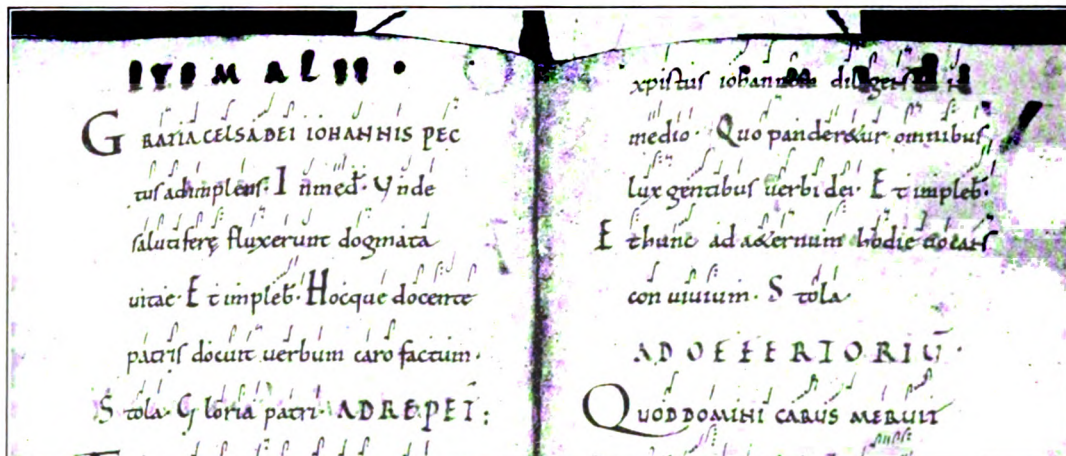 ITEM ALII ·
GRATIA CELSA DEI IOHANNIS PEC
tus adimplens· Inmed̄· Vnde
salutiferę fluxerunt dogmata
uitae· Et impleb̄· Hocque docente
patris docuit uerbum caro factum·
Stola· Gloria patri· AD REPET̄:
xpistus iohannem
medio· Quo panderetur omnibus
lux gentibus uerbi dei· Et impleb̄·
Et hunc ad aeternum hodie uocans
conuiuium· Stola·
AD OFFERTORIŪ·
QUOD DOMINI CARUS MERUIT